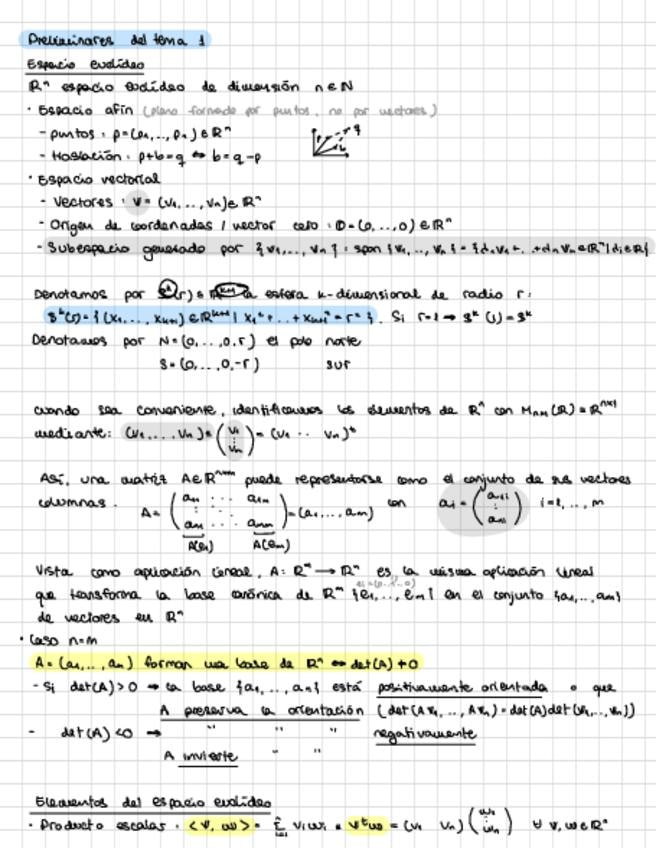 Preliminares del tema 1
Espacio euclídeo
ℝⁿ espacio euclídeo de dimensión n∈ℕ
· Espacio afín (plano formado por puntos, no por vectores)
- puntos : p=(p₁,..,pₙ)∈ℝⁿ
- traslación : p+b=q ⇔ b=q-p
· Espacio vectorial
- Vectores : v=(v₁,...,vₙ)∈ℝⁿ
- Origen de coordenadas / vector cero : 𝟘=(0,...,0)∈ℝⁿ
- Subespacio generado por {v₁,...,vₙ} : span{v₁,..,vₙ}={α₁v₁+..+αₙvₙ∈ℝⁿ|αᵢ∈ℝ}
Denotamos por 𝕊ᵏ(r)⊆ℝᵏ⁺¹ la esfera k-dimensional de radio r:
𝕊ᵏ(r)={(x₁,...,xₖ₊₁)∈ℝᵏ⁺¹| x₁²+...+xₖ₊₁²=r²}. Si r=1 ⇒ 𝕊ᵏ(1)=𝕊ᵏ
Denotamos por N=(0,...,0,r) el polo norte
S=(0,...,0,-r) sur
cuando sea conveniente, identificamos los elementos de ℝⁿ con Mₙₓ₁(ℝ)=ℝⁿˣ¹
mediante: (v₁,...,vₙ)≡(v₁ ⋮ vₙ)=(v₁ ·· vₙ)ᵗ
Así, una matriz A∈ℝⁿˣᵐ puede representarse como el conjunto de sus vectores
columnas. A=(a₁₁ ··· a₁ₘ ⋮ aₙ₁ ··· aₙₘ)=(a₁,...,aₘ) con aᵢ=(a₁ᵢ ⋮ aₙᵢ) i=1,...,m
A(e₁) A(eₘ)
Vista como aplicación lineal, A: ℝᵐ → ℝⁿ es la misma aplicación lineal
que transforma la base canónica de ℝᵐ {e₁,...,eₘ} en el conjunto {a₁,...,aₘ}
de vectores en ℝⁿ
· Caso n=m
A=(a₁,...,aₙ) forman una base de ℝⁿ ⇔ det(A)≠0
- Si det(A)>0 → la base {a₁,...,aₙ} está positivamente orientada o que
A preserva la orientación (det(Av₁,..,Avₙ)=det(A)det(v₁,..,vₙ))
- det(A)<0 → " " " negativamente
A invierte " "
Elementos del espacio euclídeo
· Producto escalar : <v,w>=Σⁿᵢ₌₁ vᵢwᵢ = vᵗw=(v₁ vₙ)(w₁ ⋮ wₙ) ∀ v,w∈ℝⁿ